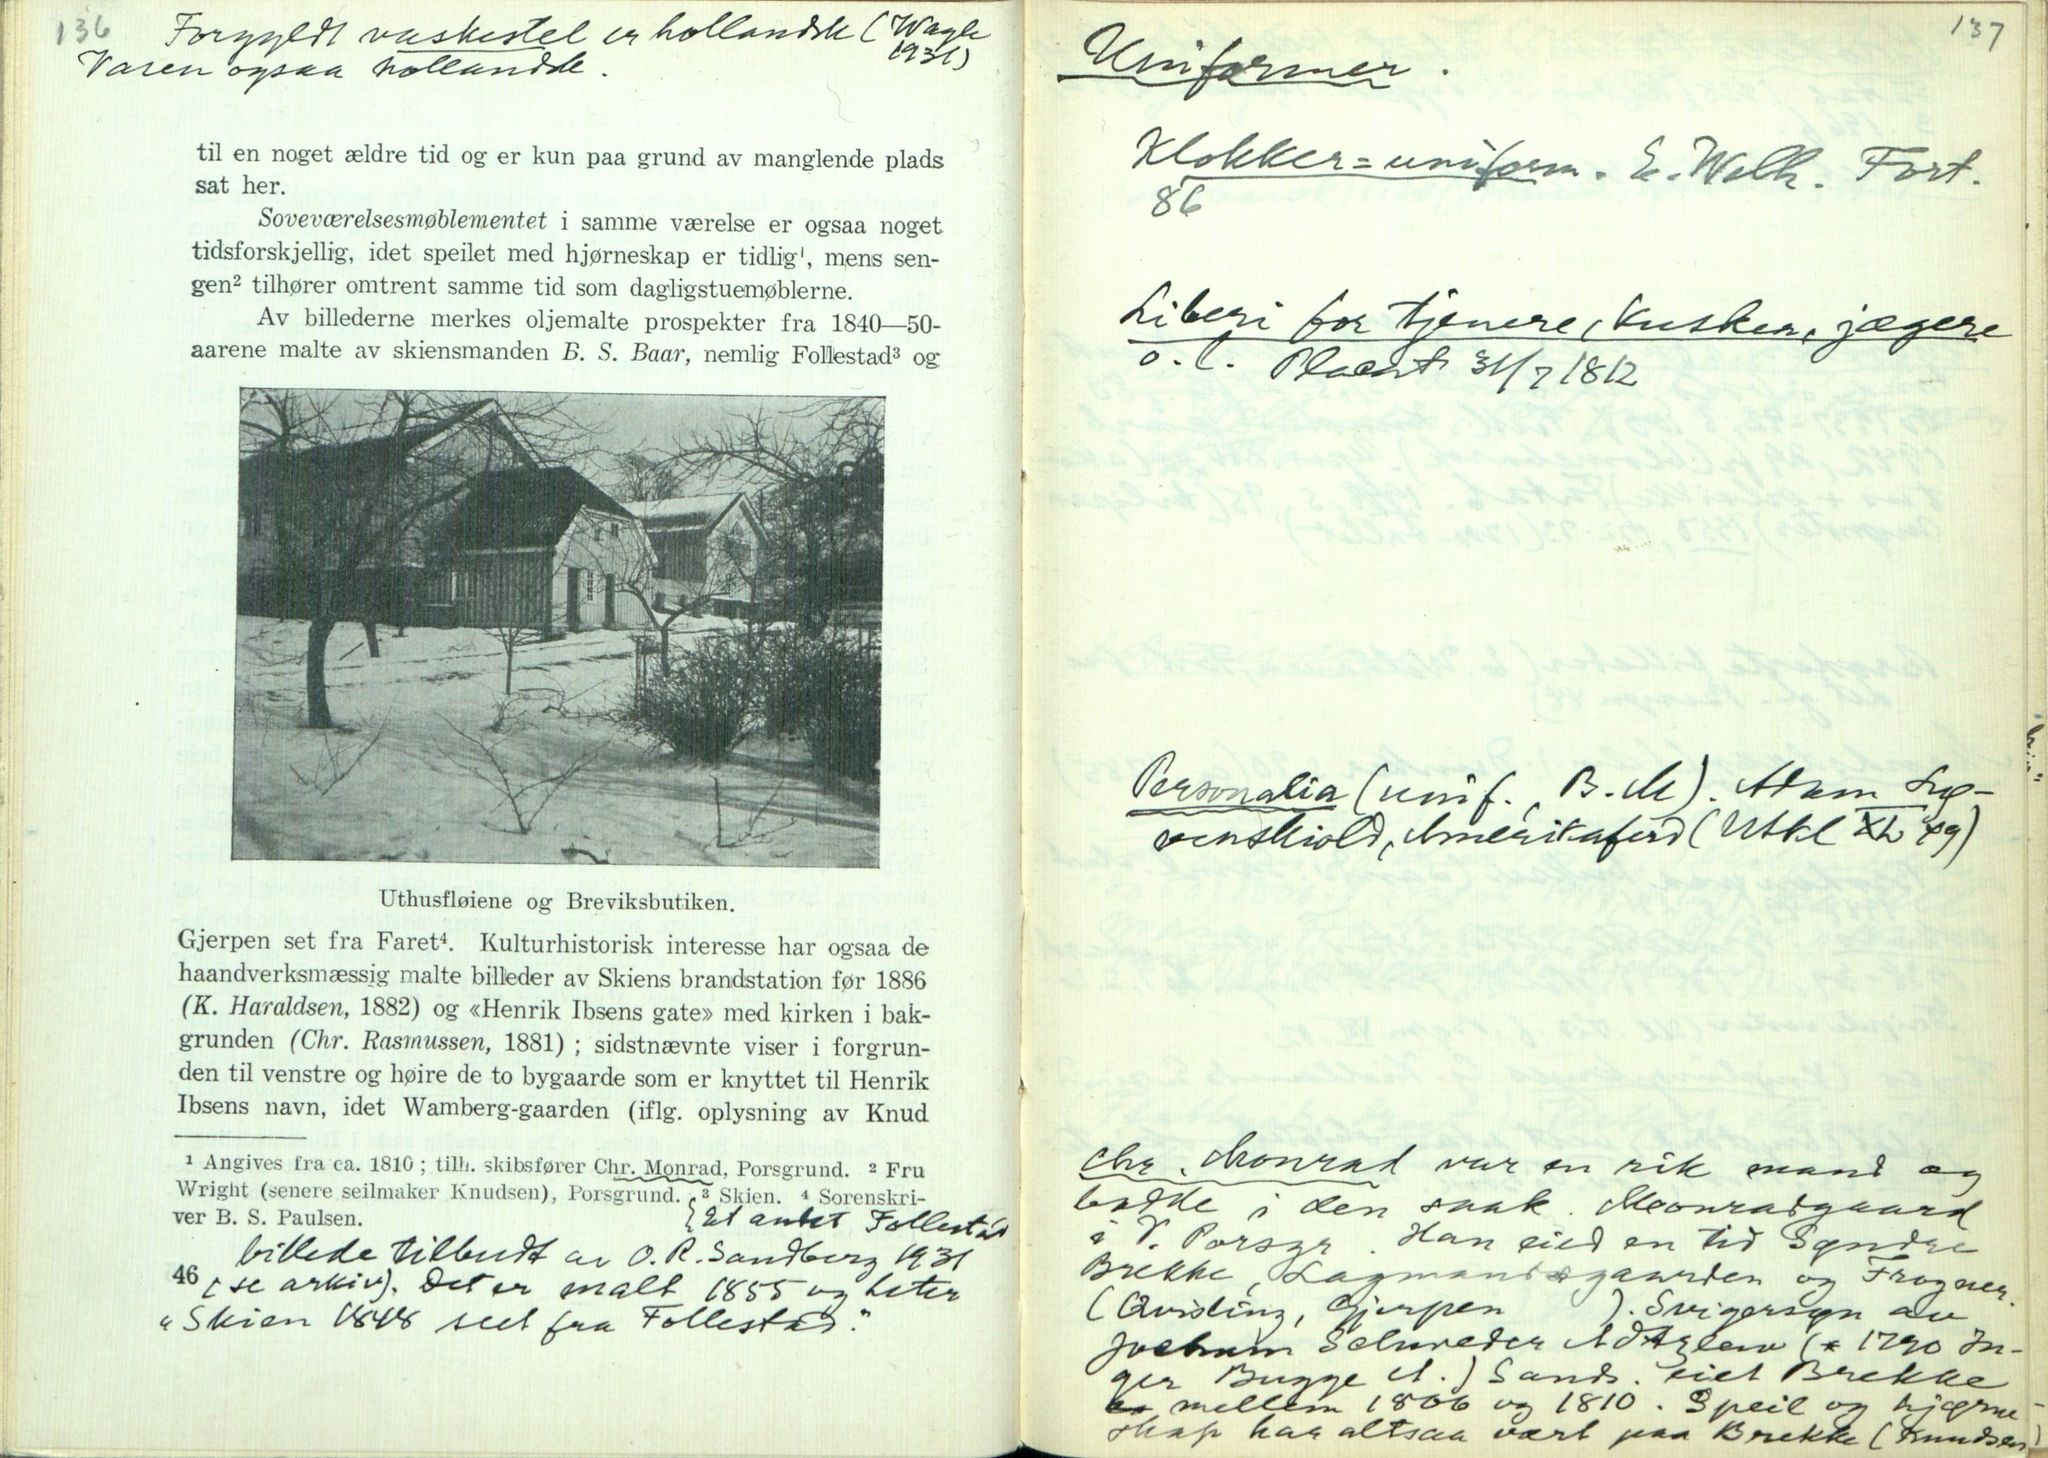 136
Forgyldt vaskestel er hollandsk (Wagle
1931)
Vasen ogsaa hollandsk.
til en noget ældre tid og er kun paa grund av manglende plads
sat her.
Soveværelsesmøblementet i samme værelse er ogsaa noget
tidsforskjellig, idet speilet med hjørneskap er tidlig¹, mens sen-
gen² tilhører omtrent samme tid som dagligstuemøblerne.
Av billederne merkes oljemalte prospekter fra 1840—50-
aarene malte av skiensmanden B. S. Baar, nemlig Follestad³ og
Uthusfløiene og Breviksbutiken.
Gjerpen set fra Faret⁴. Kulturhistorisk interesse har ogsaa de
haandverksmæssig malte billeder av Skiens brandstation før 1886
(K. Haraldsen, 1882) og «Henrik Ibsens gate» med kirken i bak-
grunden (Chr. Rasmussen, 1881) ; sidstnævnte viser i forgrun-
den til venstre og høire de to bygaarde som er knyttet til Henrik
Ibsens navn, idet Wamberg-gaarden (iflg. oplysning av Knud
¹ Angives fra ca. 1810 ; tilh. skibsfører Chr. Monrad, Porsgrund. ² Fru
Wright (senere seilmaker Knudsen), Porsgrund. ³ Skien. ⁴ Sorenskri-
ver B. S. Paulsen.
{Et andet Follestad
billede tilbudt av O. R. Sandberg 1931
46
(se arkiv). Det er malt 1855 og heter
"Skien 1848 seet fra Follestad."
137
Uniformer.
Klokker=uniform. E. Welh. Fort.
86
Liberi for tjenere, kusker, jægere
o. l. Placat 31/7 1812
Personalia (unif., B.M). Adam Lø-
venskiold, Amerikaferd (Utkl
Chr. Monrad var en rik mand og
bodde i den saak. Monradgaard
i V. Porsgr. Han eied en tid Søndre
Brekke, Lagmandsgaarden og Frogner.
(Qvisling, Gjerpen ). Svigersøn av
Jochum Schweder Adtzlew (* 1790 In-
ger Bugge A.) Sands. eiet Brekke
mellem 1806 og 1810. Speil og hjørne-
skap har altsaa vært paa Brekke (Knudsen)